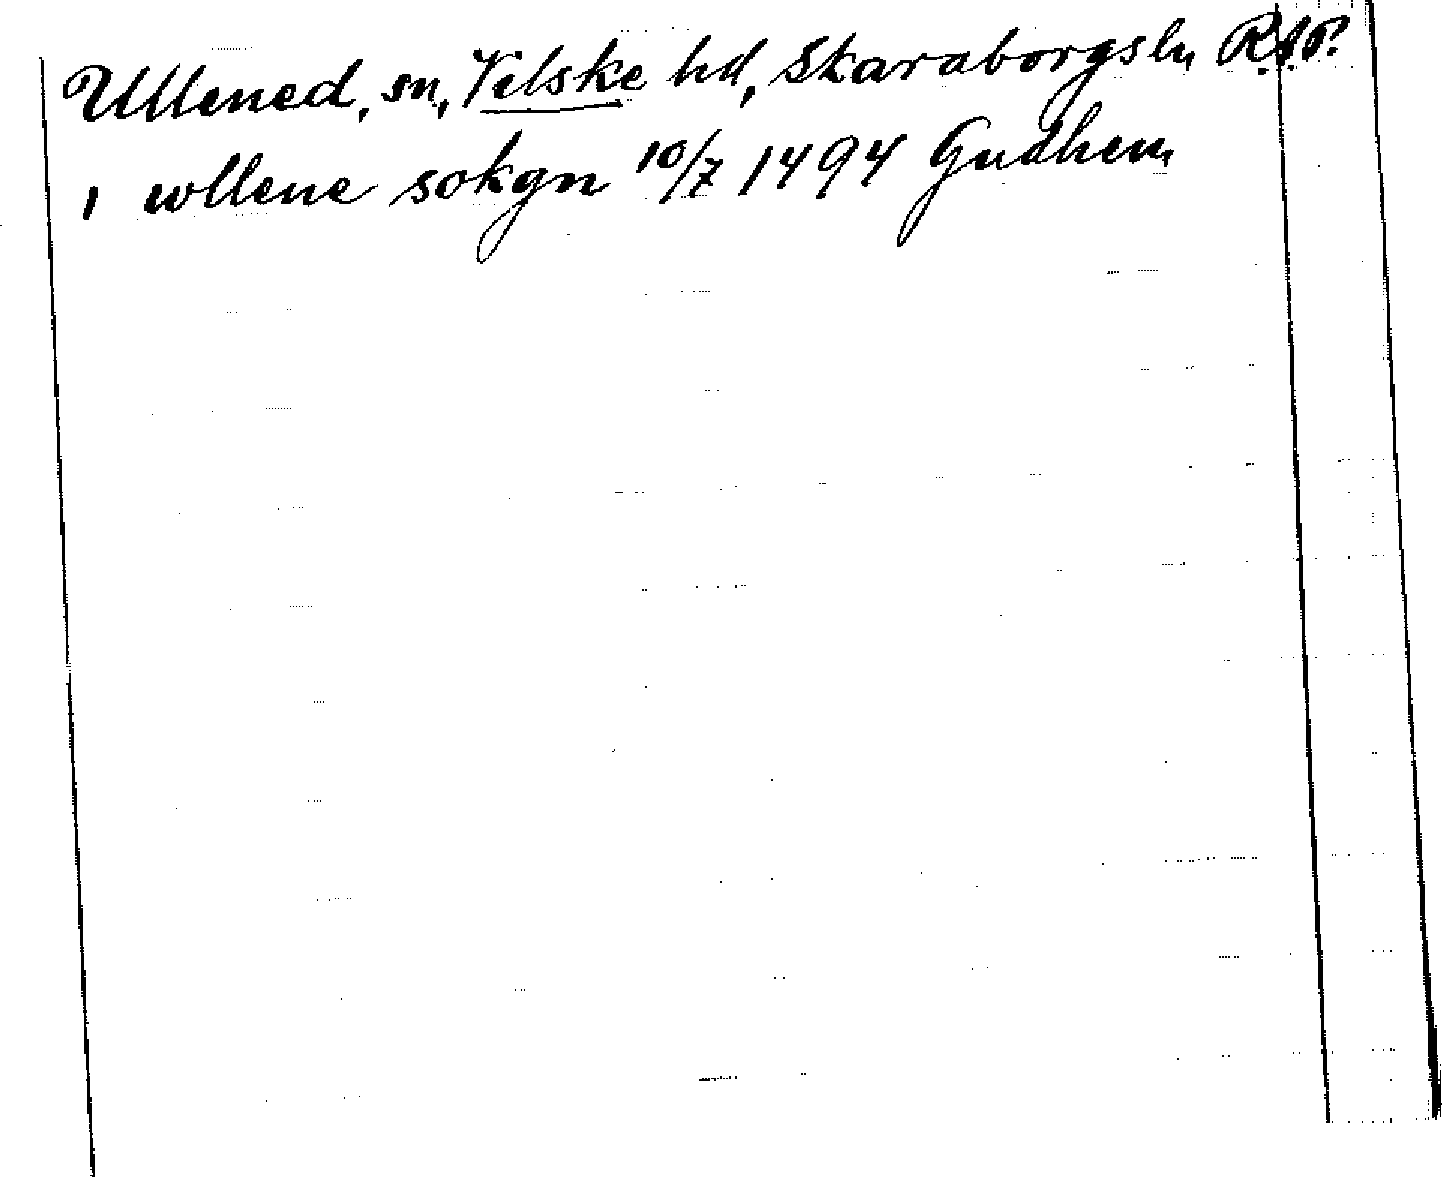 Ullened, sn, Vilske hd, Skaraborgs ln R.A.P.
i wllene sokgn 10/7 1494 Gudhem